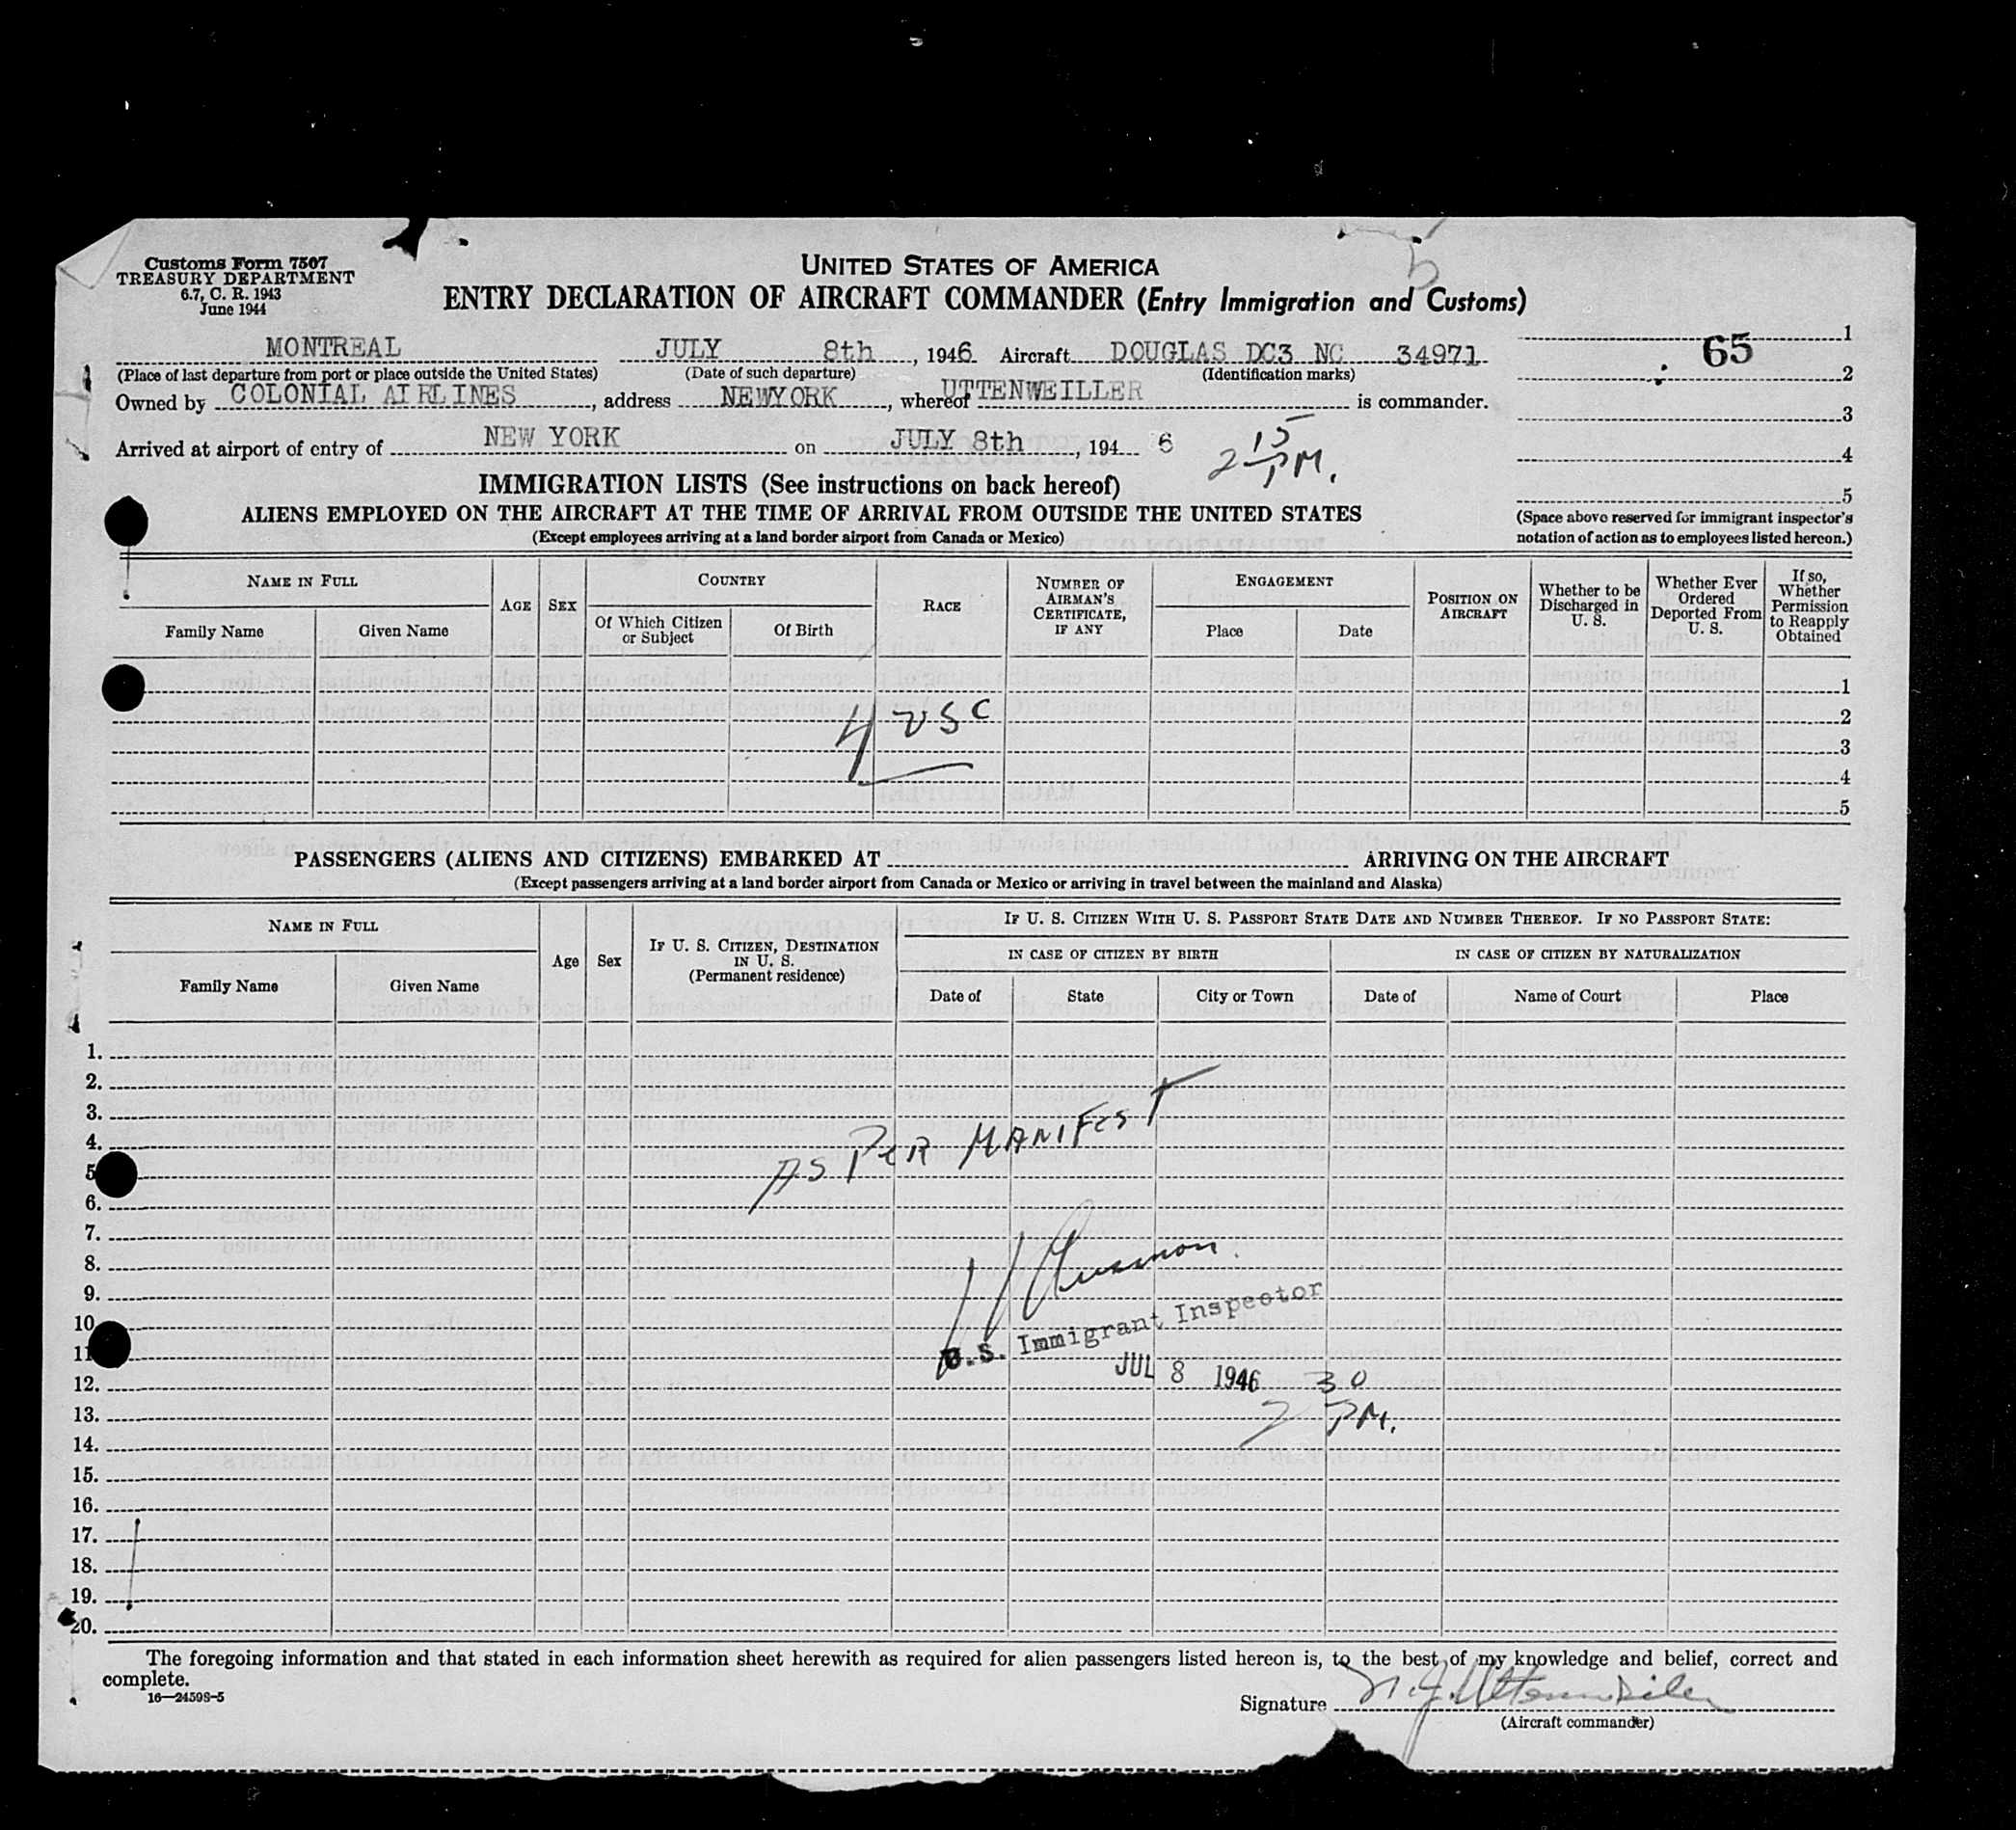 Customs Form 7507
TREASURY DEPARTMENT
6.7, C. R. 1943
June 1944
UNITED STATES OF AMERICA
ENTRY DECLARATION OF AIRCRAFT COMMANDER (Entry Immigration and Customs)
MONTREAL JULY 8th, 1946 Aircraft DOUGLAS DC3 NC 34971
(Place of last departure from port or place outside the United States) (Date of such departure) (Identification marks)
Owned by COLONIAL AIRLINES, address NEWYORK, whereof UTTENWEILLER is commander.
Arrived at airport of entry of NEW YORK on JULY 8th, 194 6 2 15 PM.
65
1
2
3
4
5
(Space above reserved for immigrant inspector's
notation of action as to employees listed hereon.)
IMMIGRATION LISTS (See instructions on back hereof)
ALIENS EMPLOYED ON THE AIRCRAFT AT THE TIME OF ARRIVAL FROM OUTSIDE THE UNITED STATES
(Except employees arriving at a land border airport from Canada or Mexico)
NAME IN FULL
Family Name Given Name
AGE
SEX
COUNTRY
Of Which Citizen
or Subject
Of Birth
RACE
NUMBER OF
AIRMAN'S
CERTIFICATE,
IF ANY
ENGAGEMENT
Place Date
POSITION ON
AIRCRAFT
Whether to be
Discharged in
U. S.
Whether Ever
Ordered
Deported From
U. S.
If so,
Whether
Permission
to Reapply
Obtained
1
2
3
4
5
4 USC
PASSENGERS (ALIENS AND CITIZENS) EMBARKED AT ARRIVING ON THE AIRCRAFT
(Except passengers arriving at a land border airport from Canada or Mexico or arriving in travel between the mainland and Alaska)
NAME IN FULL
Family Name Given Name
Age
Sex
IF U. S. CITIZEN, DESTINATION
IN U. S.
(Permanent residence)
IF U. S. CITIZEN WITH U. S. PASSPORT STATE DATE AND NUMBER THEREOF. IF NO PASSPORT STATE:
IN CASE OF CITIZEN BY BIRTH
Date of State City or Town
IN CASE OF CITIZEN BY NATURALIZATION
Date of Name of Court Place
1.
2.
3.
4.
5
6.
7.
8.
9.
10
11
12.
13.
14.
15.
16.
17.
18.
19.
20.
AS PER MANIFEST
U.S. Immigrant Inspector
JUL 8 1946
2 30 PM.
The foregoing information and that stated in each information sheet herewith as required for alien passengers listed hereon is, to the best of my knowledge and belief, correct and
complete.
16—24598-5
Signature
(Aircraft commander)